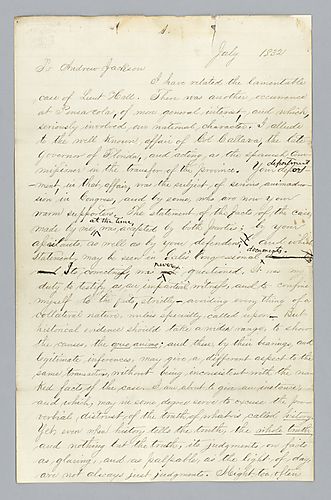 1.
July 1832
To Andrew Jackson
I have related the lamentable
case of Lieut Hall. There was another occurrence
at Pensacola, of more general interest, and which
seriously involved our national character. I allude
to the well known affair of Col Callava, the late
Governor of Florida, and acting, as the Spanish Com
missioner in the transfer of the province. Your
department
ment, in that affair, was the subject, of serious animadver
sion in Congress, and by some, who are now your
warm supporters. The statement of the facts of the case,
at the time,
made by me, was adopted by both parties; by your
as well as by your defenders, and which
documents.
statement, may be seen in the Congressional
never
Its correctness, was questioned. It was my
duty to testify as an impartial witness, and to confine
myself to the facts, strictly - avoiding every thing of a
collateral nature, unless specially called upon - But
historical evidence should take a wider range, to show
the causes, the quo animo; and these by their bearings, and
legitimate inferences, may give a different aspect to the
same transaction, without being inconsistent with the na
ked facts of the case. I am about to give an instance,
and which, may in some degree serve to excuse the pro
verbial distrust of the truth of what is called history.
Yet, even when history tells the truth, the whole truth
and nothing but the truth, its judgments, on facts
as glaring, and as palpable as the light of day
are not always just judgments. Might too often